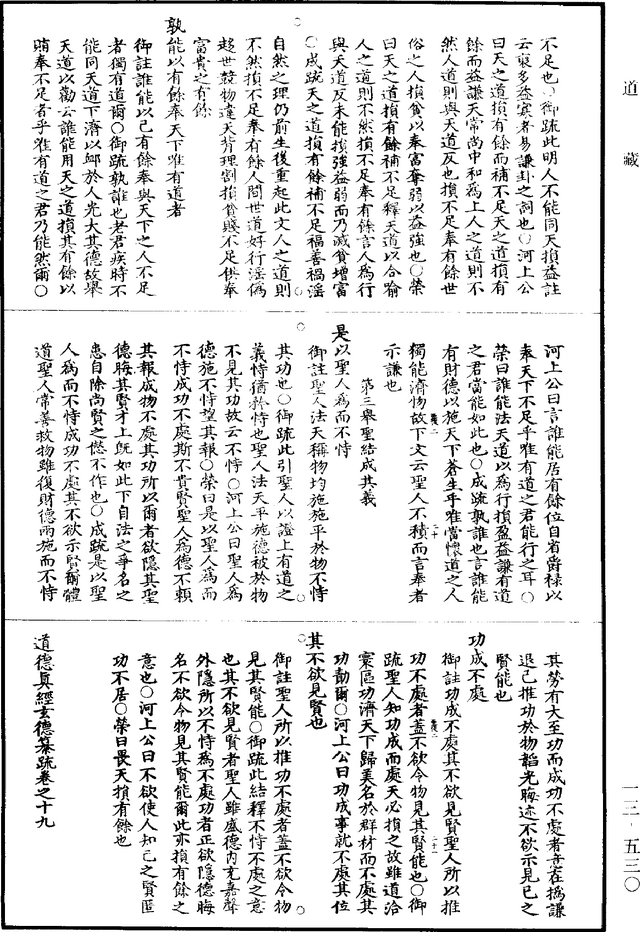 道藏
不足也○御疏此明人不能同天損益註
云裒多益寡者易謙卦之詞也○河上公
曰天之道損有餘而補不足天之道損有
餘而益謙天常尚中和為上人之道則不
然人道則與天道反也損不足奉有餘世
俗之人損貧以奉富奪弱以益強也○榮
曰天之道損有餘補不足釋天道以合喻
人之道則不然損不足奉有餘言人為行
與天道反未能損強益弱而乃減貧增富
○成疏天之道損有餘補不足福善禍淫
自然之理仍前生後重起此文人之道則
不然損不足奉有餘人間世道好行淫偽
趍世競物違天背理割損貧賤不足供奉
富貴之有餘
孰能以有餘奉天下唯有道者
御註誰能以己有餘奉與天下之人不足
者獨有道爾○御疏孰誰也老君疾時不
能同天道下濟以卹於人光大其德故舉
天道以勸云誰能用天之道損其有餘以
賄奉不足者乎唯有道之君乃能然爾○
河上公曰言誰能居有餘位自省爵祿以
奉天下不足乎唯有道之君能行之耳○
榮曰誰能法天道以為行損盈益謙有道
之君當能如此也○成疏孰誰也言誰能
有財德以施天下蒼生乎唯當懷道之人
獨能濟物故下文云聖人不積而言奉者
示謙也
第三舉聖結成其義
是以聖人為而不恃
御註聖人法天稱物均施施平於物不恃
其功也○御疏此引聖人以證上有道之
義恃猶矜恃也聖人法天平施德被於物
不見其功故云不恃○河上公曰聖人為
德施不恃望其報○榮曰是以聖人為而
不恃成功不處斯不貴賢聖人為德不賴
其報成物不處其功所以爾者欲隱其聖
德晦其賢才上旣如此下自法之爭名之
患自除尚賢之愆不作也○成疏是以聖
人為而不恃成功不處其不欲示賢爾體
道聖人常善救物雖復財德兩施而不恃
其勞有大至功而成功不處者意在撝謙
退己推功於物韜光晦迹不欲示見己之
賢能也
功成不處
御註功成不處其不欲見賢聖人所以推
功不處者蓋不欲令物見其賢能也○御
疏聖人知功成而處天必損之故雖道洽
寰區功濟天下歸美名於群材而不處其
功勣爾○河上公曰功成事就不處其位
其不欲見賢也
御註聖人所以推功不處者蓋不欲令物
見其賢能○御疏此結釋不恃不處之意
也其不欲見賢者聖人雖盛德內充嘉聲
外隱所以不恃為不處功者正欲隱德晦
名不欲令物見其賢能爾此亦損有餘之
意也○河上公曰不欲使人知己之賢匿
功不居○榮曰畏天損有餘也
道德真經玄德纂疏卷之十九
一三·五三〇